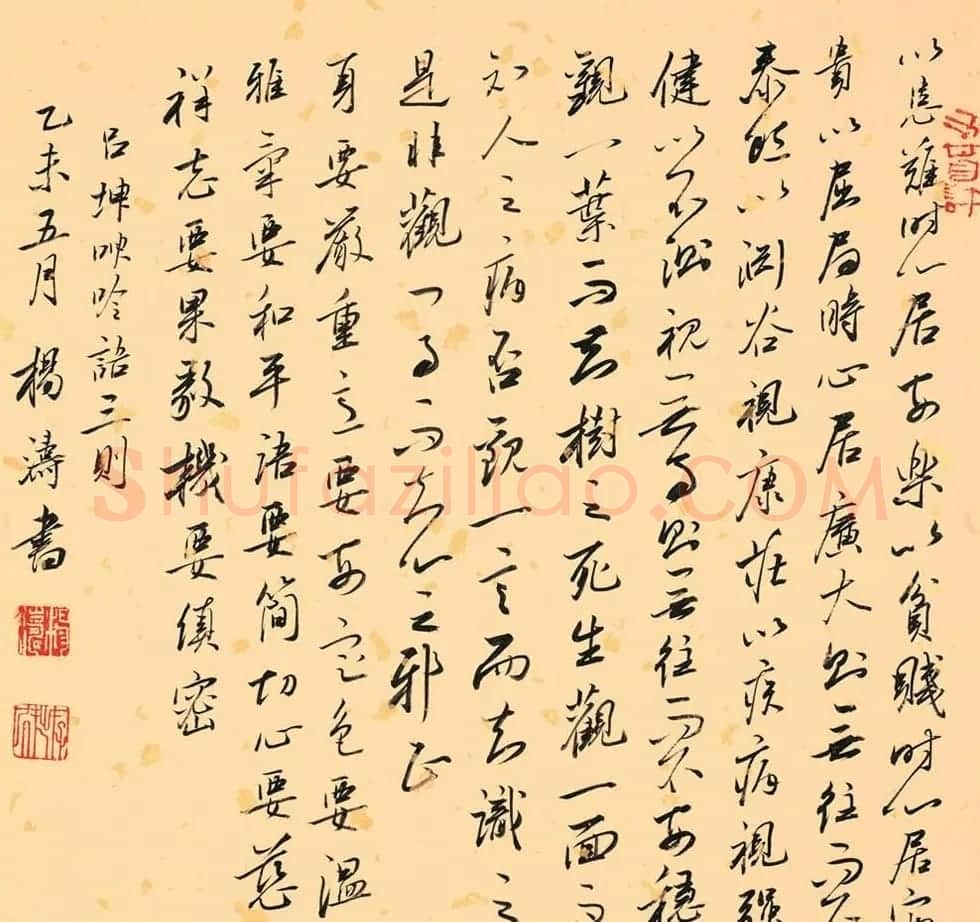 以患難时心居安樂以貧賤时心居
貴以屈局時心居廣大則無往而不
泰然以淵谷視康莊以疾病視強
健以不測視無事則無往而不安穩
觀一葉而知樹之死生觀一面而
知人之病否觀一言而知識之
是非觀一事而知心之邪正
身要嚴重意要安定色要溫
雅氣要和平語要簡切心要慈
祥志要果毅機要縝密
吕坤呻吟語三則
乙未五月 楊濤書
Shufaziliao.COM